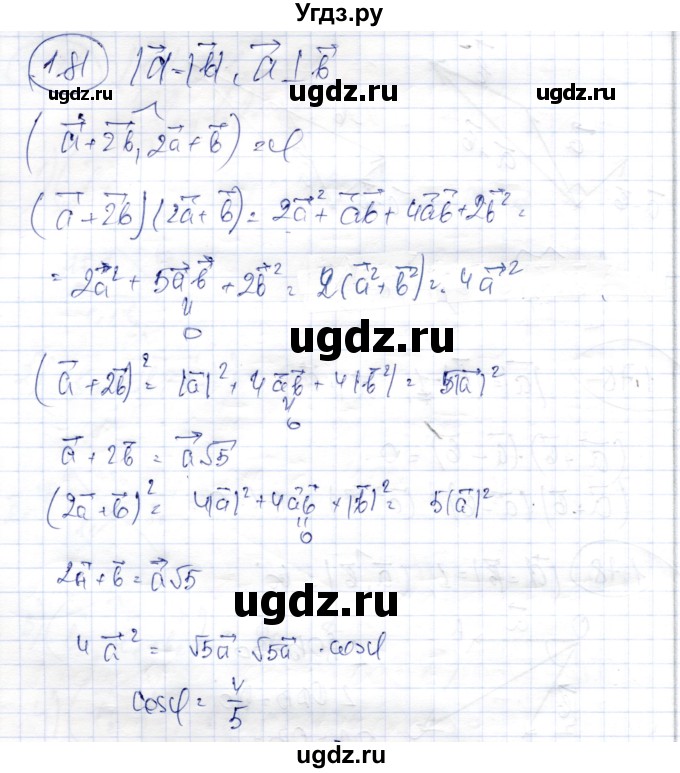 Угдз.ру
181 |a⃗|=|b⃗|, a⃗ ⊥ b⃗
ugdz.ru ugdz.ru ugdz.ru
(a⃗+2b⃗, 2a⃗+b⃗) = φ
(a⃗+2b⃗)(2a⃗+b⃗) = 2a⃗² + a⃗b⃗ + 4a⃗b⃗ + 2b⃗² =
= 2a⃗² + 5a⃗·b⃗ + 2b⃗² = 2(a⃗²+b⃗²) = 4a⃗²
0
ugdz.ru
(a⃗+2b⃗)² = |a⃗|² + 4a⃗b⃗ + 4|b⃗²| = 5|a⃗|²
0
ugdz.ru ugdz.ru
a⃗ + 2b⃗ = a⃗√5
(2a⃗+b⃗)² = 4|a⃗|² + 4a⃗b⃗ + |b⃗|² = 5|a⃗|²
0
2a⃗+b⃗ = a⃗√5
ugdz.ru
4a⃗² = √5a⃗ · √5a⃗ · cosφ
ugdz.ru ugdz.ru
cosφ = 4/5
ugdz.ru